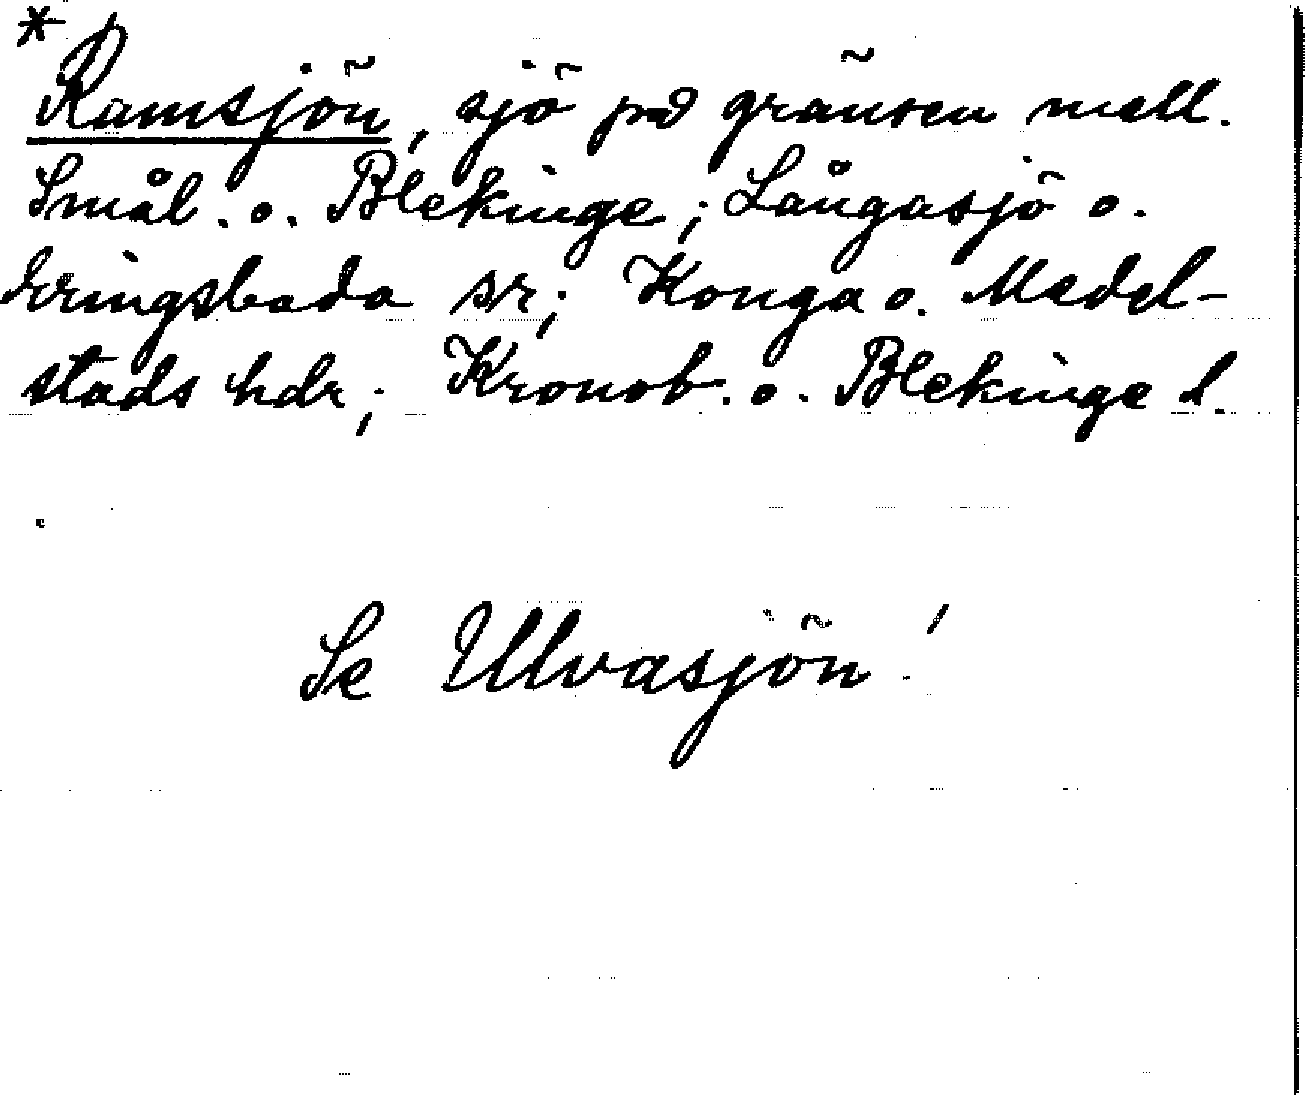 *
Ramsjön, sjö på gränsen mell.
Smål. o. Blekinge; Långasjö o.
Eringsboda sr; Konga o. Medel-
stads hdr; Kronob. o. Blekinge l.
Se Ulvasjön!